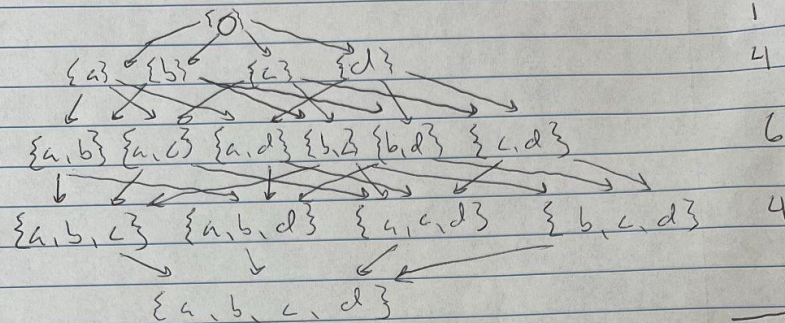 {0} 1
{a} {b} {c} {d} 4
{a,b} {a,c} {a,d} {b,c} {b,d} {c,d} 6
{a,b,c} {a,b,d} {a,c,d} {b,c,d} 4
{a,b,c,d}